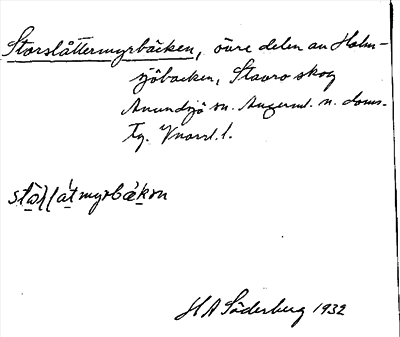 Storslåttermyrbäcken, övre delen av Holm-
sjöbäcken, Stavro skog
Anundsjö sn. Ångerml. n. doms.
Tg. Vnorrl. l.
H A Söderberg 1932